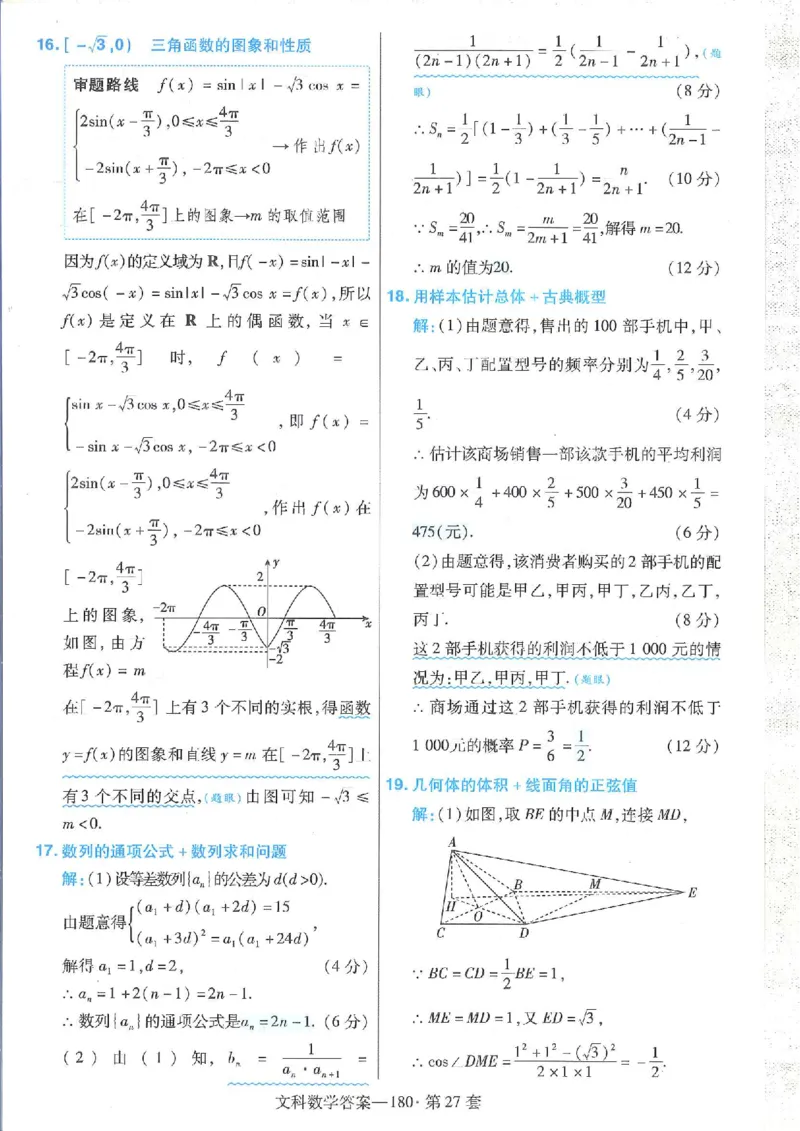 16. [ -√3,0) 三角函数的图象和性质
审题路线 f(x) = sin|x| - √3 cos x =
{2sin(x - π/3), 0≤x≤4π/3
-2sin(x + π/3), -2π≤x<0 →作出f(x)
在[ -2π, 4π/3 ]上的图象→m 的取值范围
因为f(x)的定义域为 R,且f( -x) = sin| -x| -
√3cos( -x) = sin|x| - √3cos x = f(x),所以
f(x) 是 定 义 在 R 上 的 偶 函 数, 当 x ∈
[ -2π, 4π/3 ] 时, f ( x ) =
{sin x - √3cos x, 0≤x≤4π/3
-sin x - √3cos x, -2π≤x<0 ,即 f(x) =
{2sin(x - π/3), 0≤x≤4π/3
-2sin(x + π/3), -2π≤x<0 ,作出 f(x) 在
[ -2π, 4π/3 ]
上的图象,
如图,由方
程f(x) = m
y
2
-2π
O
-4π/3 -π/3 π/3 4π/3 x
-√3
-2
在[ -2π, 4π/3 ]上有 3 个不同的实根,得函数
y=f(x)的图象和直线 y=m 在[ -2π, 4π/3 ]上
有3 个不同的交点,(题眼)由图可知 -√3 ≤
m<0.
17. 数列的通项公式 + 数列求和问题
解:(1)设等差数列{aₙ}的公差为d(d>0).
由题意得{(a₁ + d)(a₁ + 2d) = 15
(a₁ + 3d)² = a₁(a₁ + 24d) ,
解得 a₁ = 1,d = 2, (4 分)
∴ aₙ = 1 + 2(n - 1) = 2n - 1.
∴ 数列{aₙ}的通项公式是aₙ = 2n - 1. (6 分)
(2) 由 (1) 知, bₙ = 1/(aₙ · aₙ₊₁) =
1/((2n-1)(2n+1)) = 1/2(1/(2n-1) - 1/(2n+1)),(题
眼) (8 分)
∴ Sₙ = 1/2[(1 - 1/3) + (1/3 - 1/5) + ⋯ + (1/(2n-1) -
1/(2n+1))] = 1/2(1 - 1/(2n+1)) = n/(2n+1). (10 分)
∵ Sₘ = 20/41,∴ Sₘ = m/(2m+1) = 20/41,解得 m = 20.
∴ m 的值为20. (12 分)
18. 用样本估计总体 + 古典概型
解:(1)由题意得,售出的 100 部手机中,甲、
乙、丙、丁配置型号的频率分别为1/4, 2/5, 3/20,
1/5. (4 分)
∴ 估计该商场销售一部该款手机的平均利润
为600 × 1/4 + 400 × 2/5 + 500 × 3/20 + 450 × 1/5 =
475(元). (6 分)
(2)由题意得,该消费者购买的2 部手机的配
置型号可能是甲乙,甲丙,甲丁,乙丙,乙丁,
丙丁. (8 分)
这 2 部手机获得的利润不低于 1 000 元的情
况为:甲乙,甲丙,甲丁.(题眼)
∴ 商场通过这 2 部手机获得的利润不低于
1 000元的概率 P = 3/6 = 1/2. (12 分)
19. 几何体的体积 + 线面角的正弦值
解:(1)如图,取 BE 的中点 M,连接 MD,
A
B M E
H
O
C D
∵ BC = CD = 1/2 BE = 1,
∴ ME = MD = 1,又 ED = √3,
∴ cos∠DME = (1² + 1² - (√3)²)/(2 × 1 × 1) = -1/2.
文科数学答案—180· 第 27 套